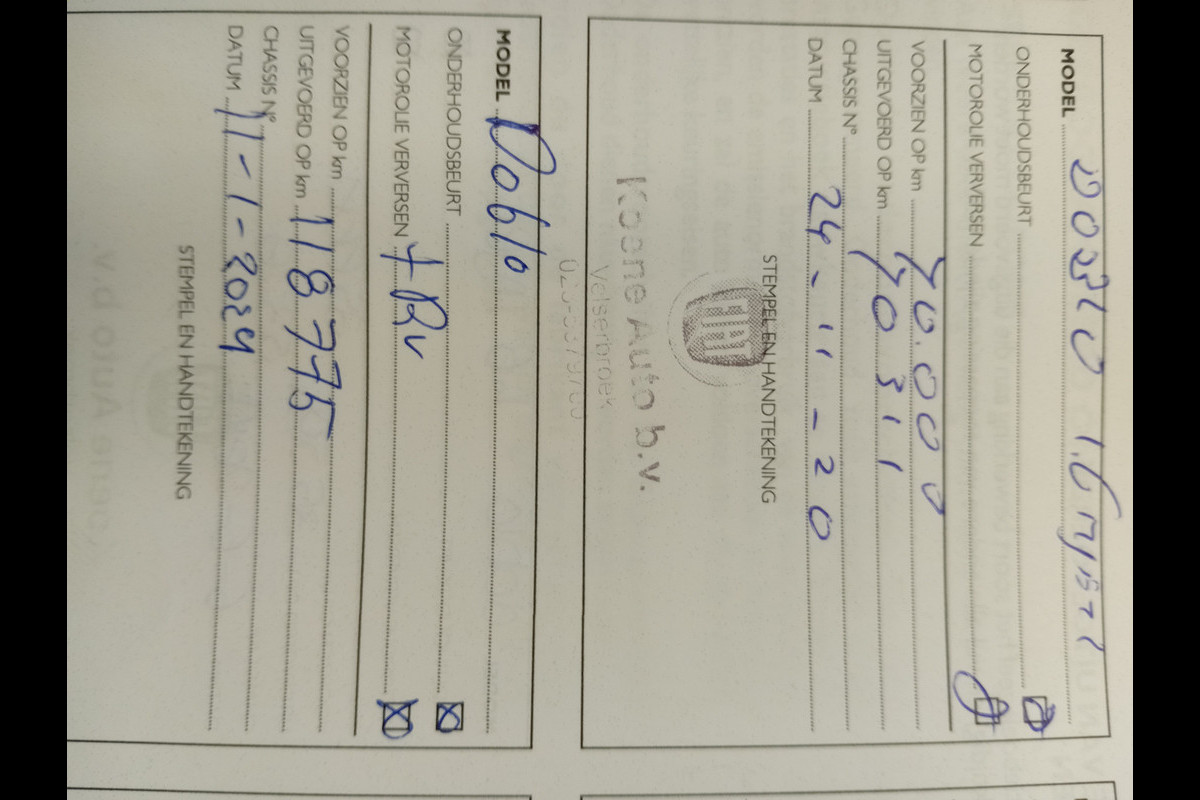 MODEL DOBLO 1.6 MJET
ONDERHOUDSBEURT
MOTOROLIE VERVERSEN
VOORZIEN OP km 40.000
UITGEVOERD OP km 40311
CHASSIS N°
DATUM 24-11-20
STEMPEL EN HANDTEKENING
FIAT
Velserbroek
MODEL Doblo
ONDERHOUDSBEURT
MOTOROLIE VERVERSEN
VOORZIEN OP km
UITGEVOERD OP km 118775
CHASSIS N°
DATUM 11-1-2024
STEMPEL EN HANDTEKENING